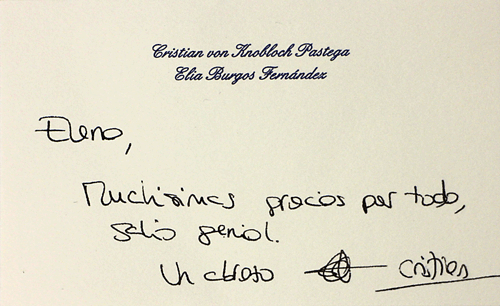 Cristian von Knobloch Pastega
Elia Burgos Fernández
Elena,
Muchisimas gracias por todo,
salio genial.
Un abrazo Cristian